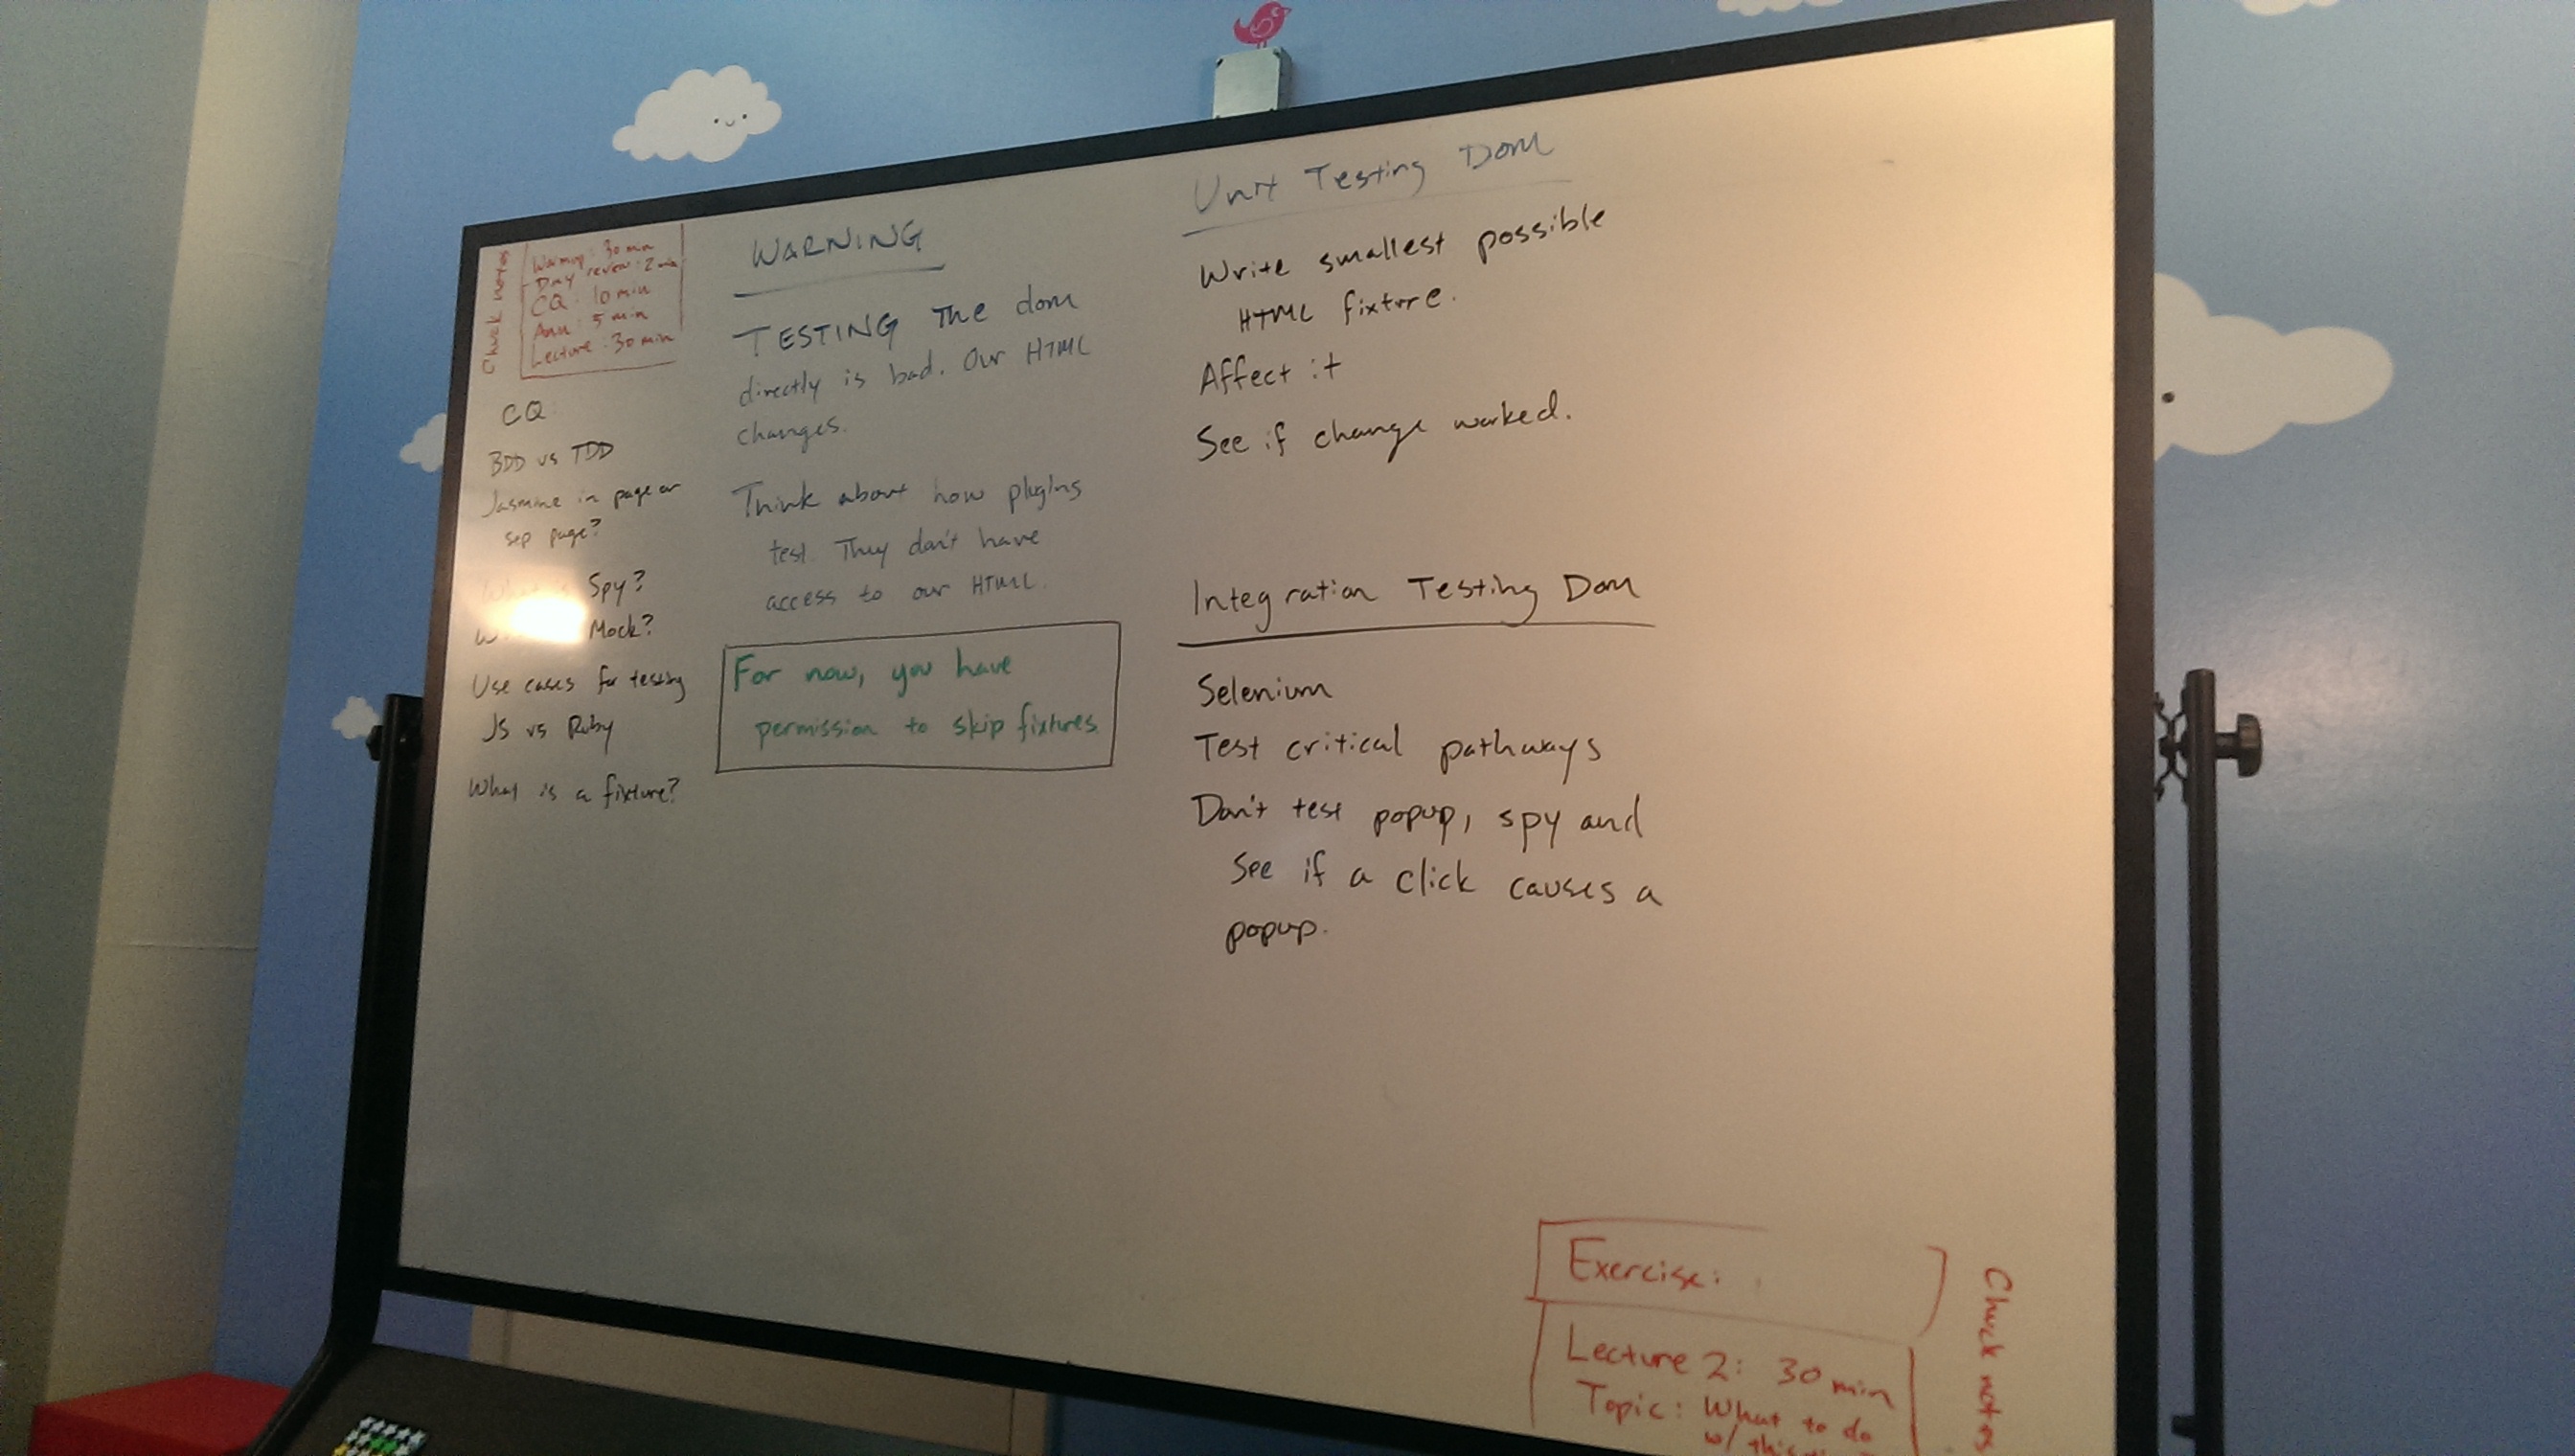 Chuck notes
Warmup: 30 min
Day review: 2 min
CQ: 10 min
Ann: 5 min
Lecture: 30 min
CQ
BDD vs TDD
Jasmine in page or
sep page?
What is Spy?
Mock?
Use cases for testing
JS vs Ruby
What is a fixture?
WARNING
TESTING The dom
directly is bad. Our HTML
changes.
Think about how plugins
test. They don't have
access to our HTML.
For now, you have
permission to skip fixtures.
Unit Testing Dom
Write smallest possible
HTML fixture.
Affect it
See if change worked.
Integration Testing Dom
Selenium
Test critical pathways
Don't test popup, spy and
See if a click causes a
popup.
Exercise:
Lecture 2: 30 min
Topic: What to do
w/ this
Chuck notes